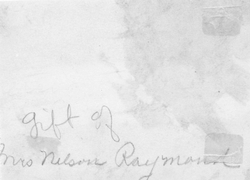 gift of
Mrs Nelson Raymond